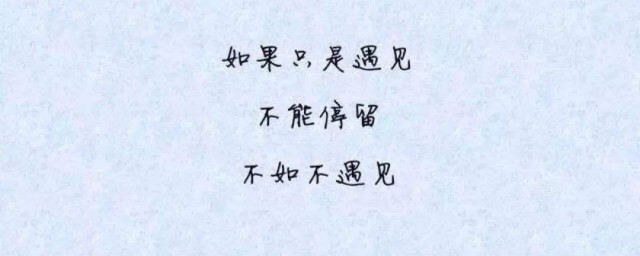 如果只是遇见
不能停留
不如不遇见